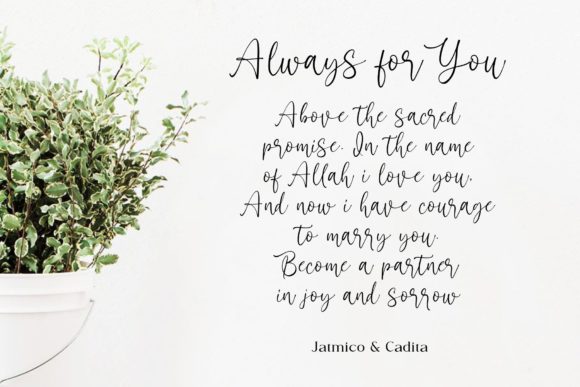 Always for You
Above the sacred
promise. In the name
of Allah i love you.
And now i have courage
to marry you.
Become a partner
in joy and sorrow
Jatmico & Cadita